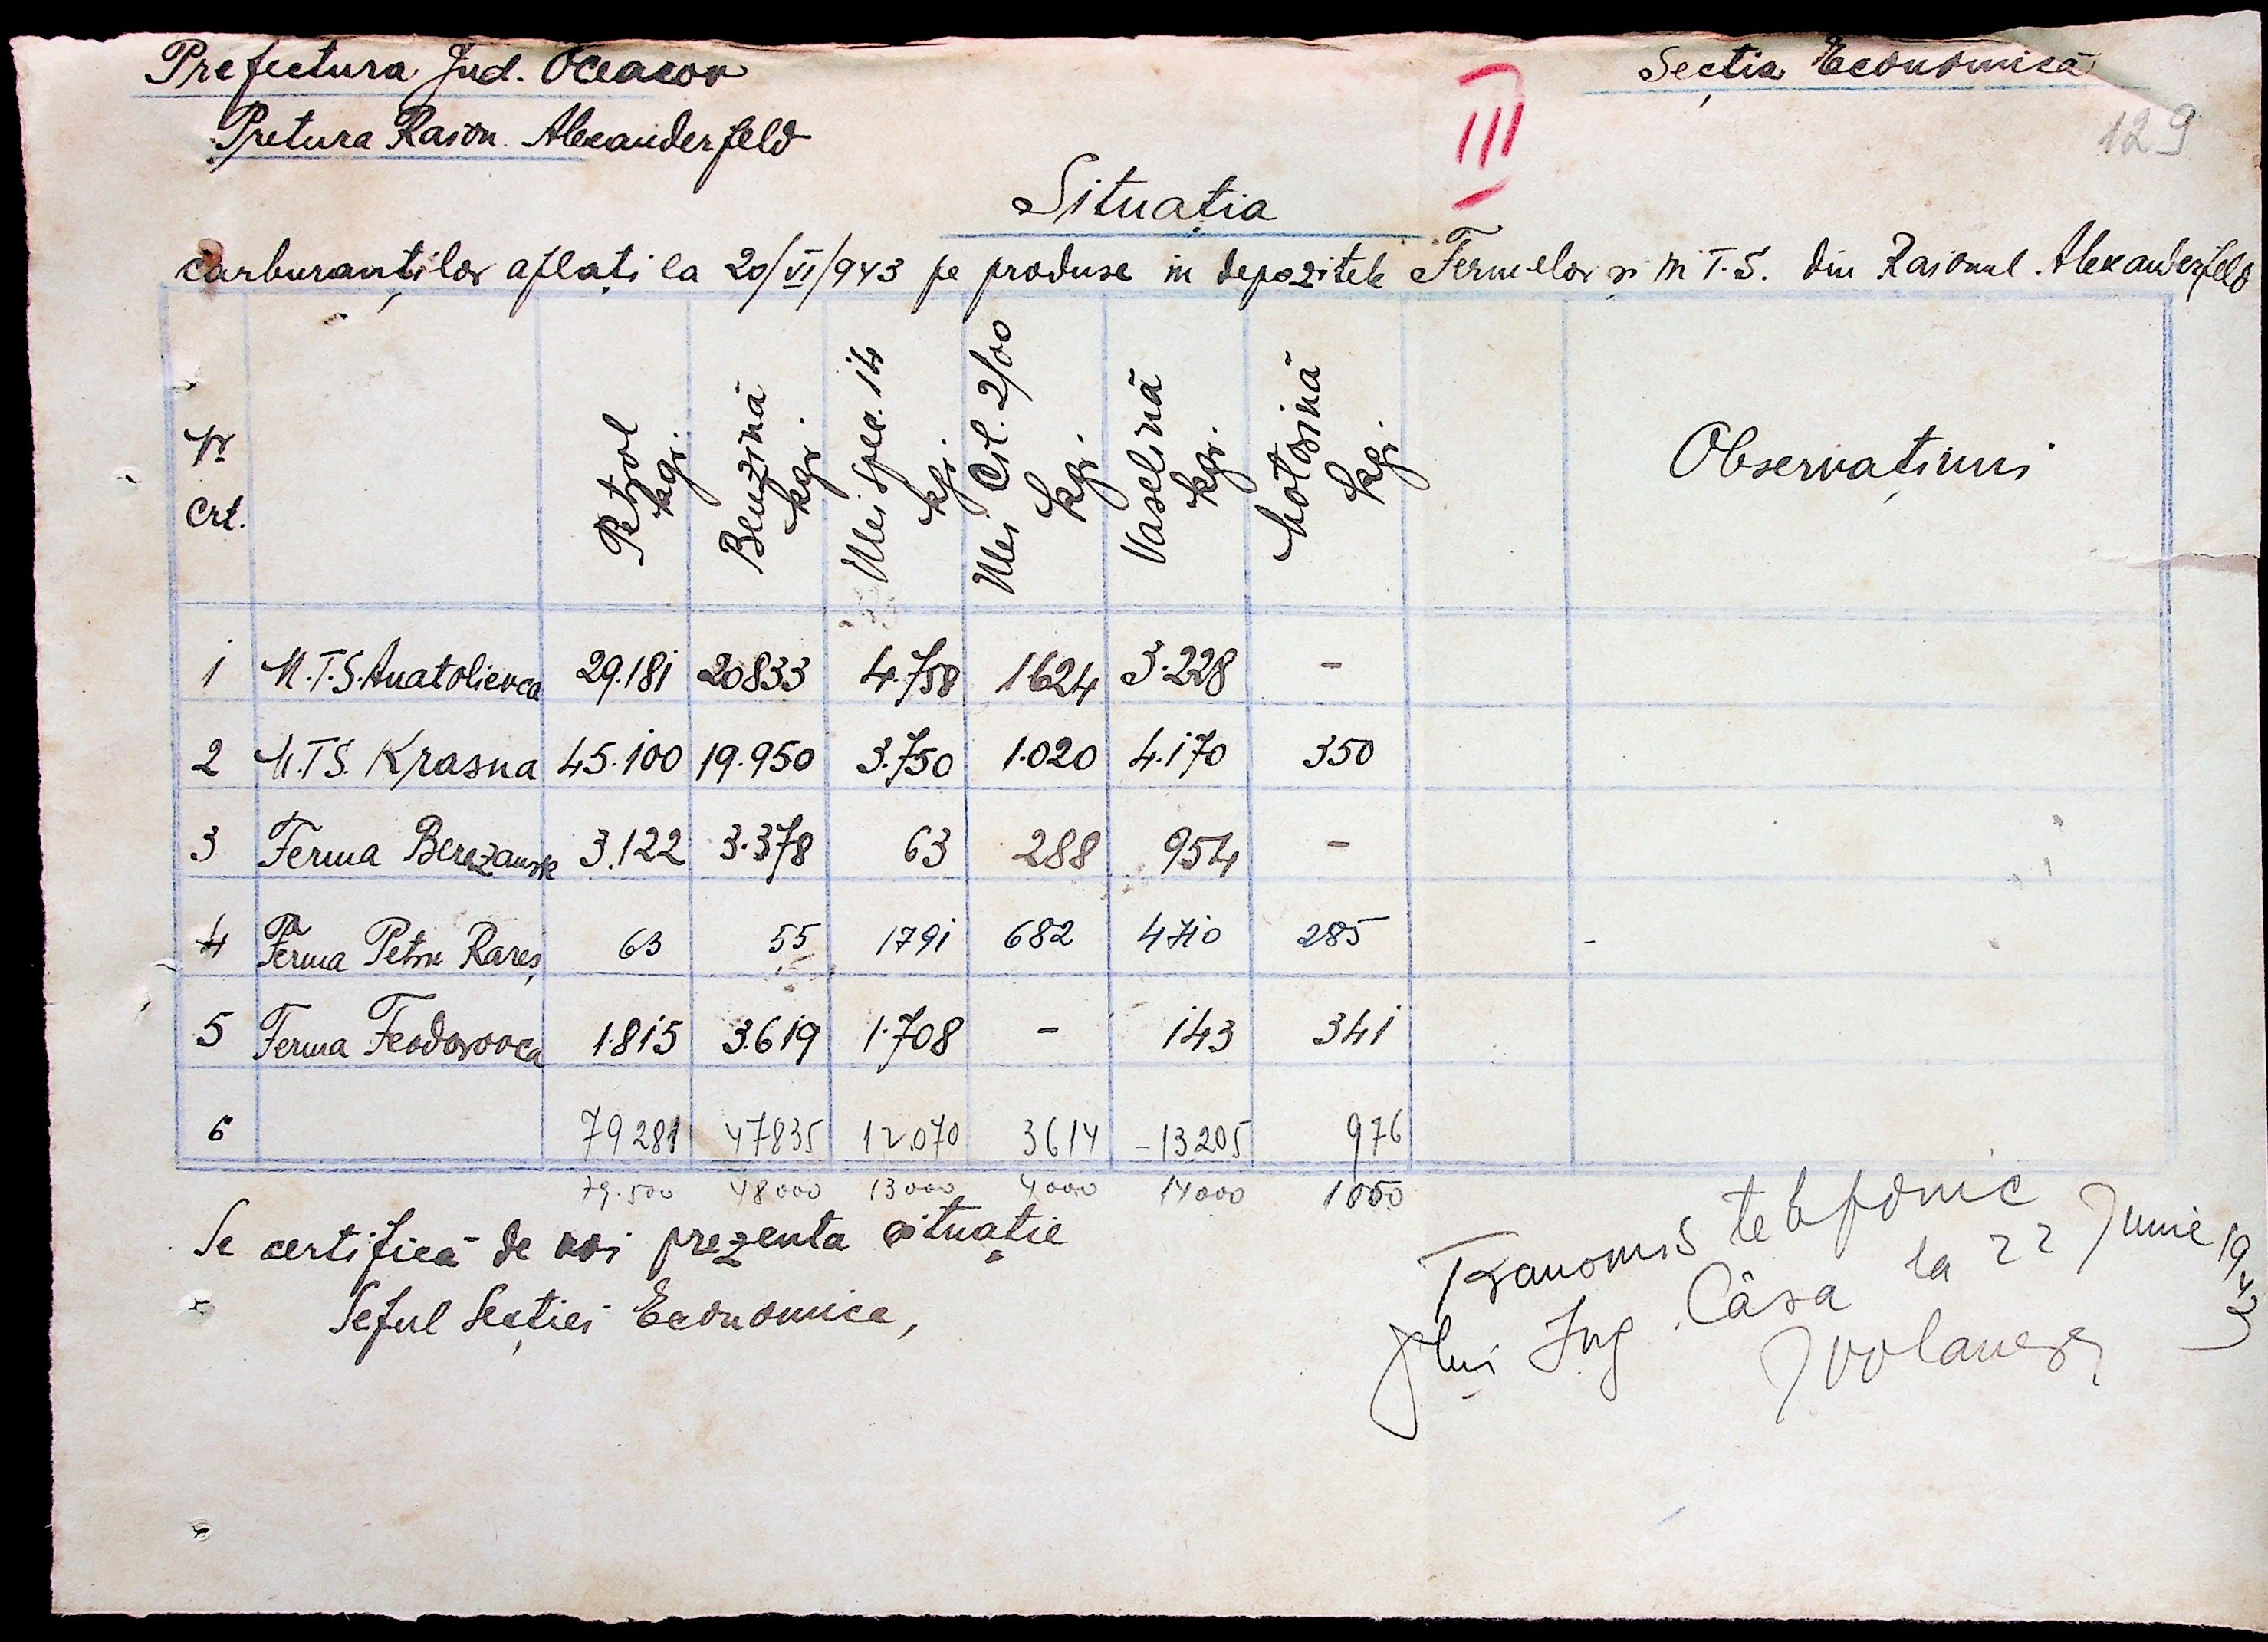 Prefectura Jud. Oceacov
Secția Economică
Pretura Raion. Alexanderfeld
III
129
Situația
carburanților aflați la 20/VI/943 pe produse in depozitele Fermelor și M.T.S. din Raionul Alexanderfeld
Nr. Crt. Petrol kgr. Benzină kgr. Ulei Spec. 14 kgr. Ulei Cil. 2/00 kgr. Vaselină kgr. Motorină kgr. Observațiuni
1 M.T.S. Anatolievca 29.181 20833 4.758 1624 3.228 -
2 M.T.S. Krasna 45.100 19.950 3.750 1.020 4.170 350
3 Ferma Berezansk 3.122 3.378 63 288 954 -
4 Ferma Petru Rareș 63 55 1791 682 4710 285 -
5 Ferma Feodorovca 1.815 3.619 1.708 - 143 341
6 79281 47835 12.070 3614 -13205 976
79.500 48000 13000 4000 14000 1000
Se certifică de noi prezenta situație
Seful Secției Economice,
Transmis telefonic
dlui Ing. Câsa la 22 Junie 1943